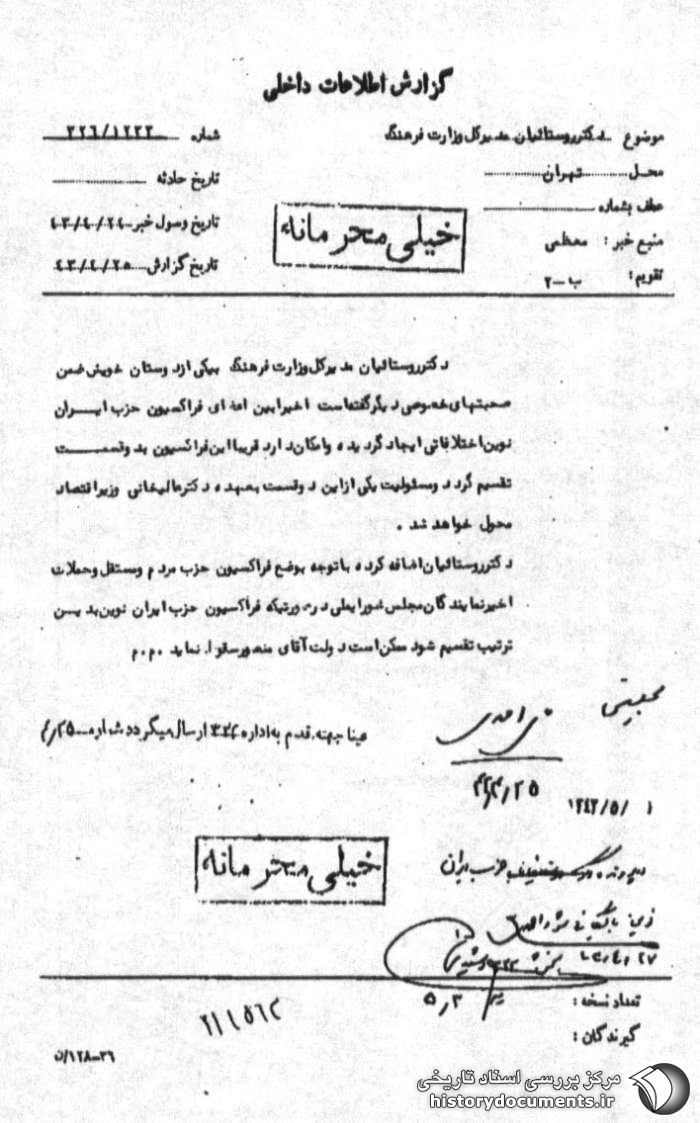 گزارش اطلاعات داخلی
موضوع دکتر روستائیان مدیرکل وزارت فرهنگ
شماره ۳۲۶/۱۲۳۳
محل تهران
تاریخ حادثه
عطف بشماره
تاریخ وصول خبر ۴۳/۴/۲۴
منبع خبر : معظمی
تاریخ گزارش ۴۳/۴/۲۵
تقویم : ب-۲
خیلی محرمانه
دکتر روستائیان مدیرکل وزارت فرهنگ بیکی از دوستان خویش ضمن
صحبتهای خصوصی دیگر گفته است اخیرا بین اعضای فراکسیون حزب ایران
نوین اختلافاتی ایجاد گردیده و امکان دارد قریبا این فراکسیون بدو قسمت
تقسیم گردد و مسئولیت یکی از این دو قسمت بعهده دکتر عالیخانی وزیر اقتصاد
محول خواهد شد .
دکتر روستائیان اضافه کرده با توجه بوضع فراکسیون حزب مردم و مستقل و حملات
اخیر نمایندگان مجلس شورا بطی در صورتیکه فراکسیون حزب ایران نوین بدین
ترتیب تقسیم شود ممکن است دولت آقای منصور سقوط نماید .م.م
عینا جهت قدم به اداره ۳۳۴ ارسال میگردد
۴۳/۴/۲۵
۱۳۴۳/۵/۱
خیلی محرمانه
حزب ایران
۴۳/۴/۲۷
تعداد نسخه :
۵/۳
گیرندگان :
۲۱۱۵۶۲
۳۶-۱۲۸/ن
مرکز بررسی اسناد تاریخی
historydocuments.ir